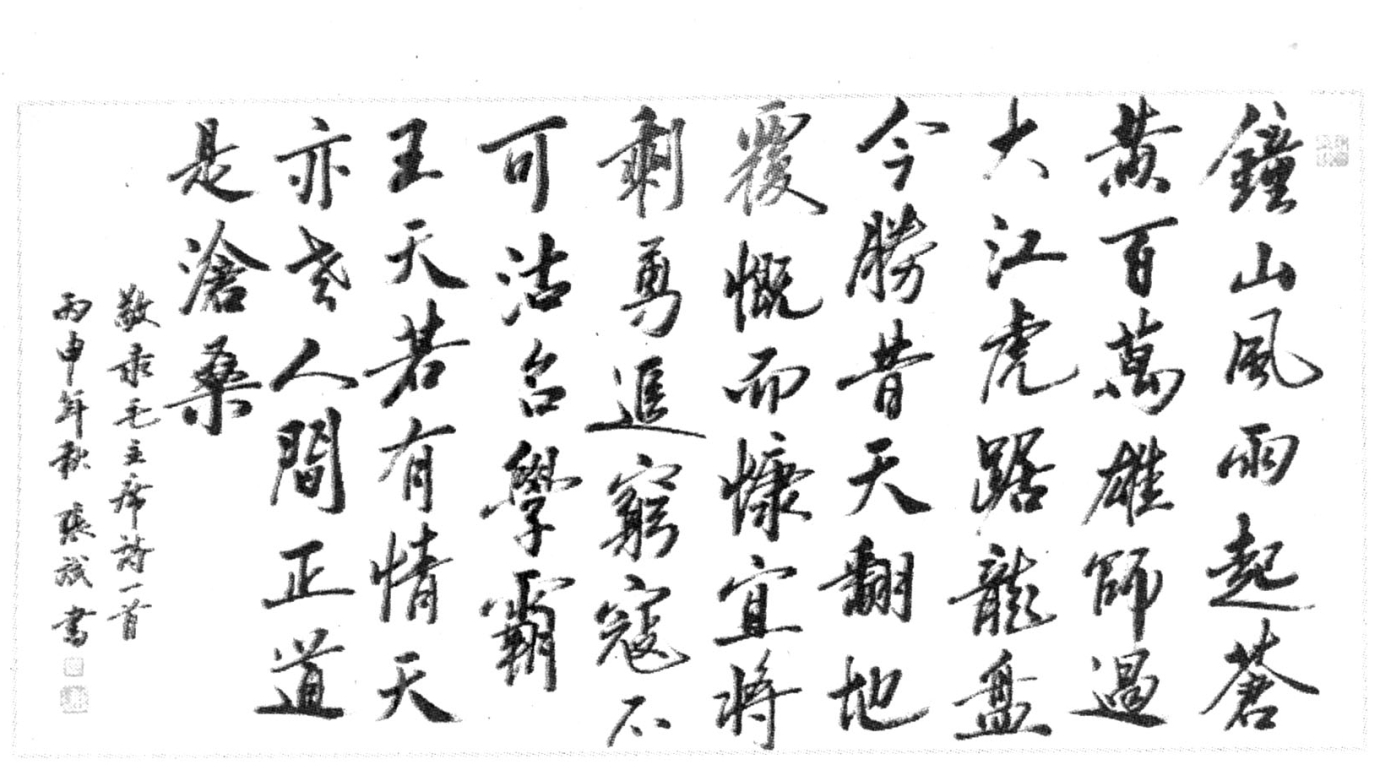 鐘山風雨起蒼
黄百萬雄師過
大江虎踞龍盤
今勝昔天翻地
覆慨而慷宜将
剩勇追窮寇不
可沽名學霸
王天若有情天
亦老人間正道
是滄桑
敬录毛主席詩一首
丙申年秋 張斌書